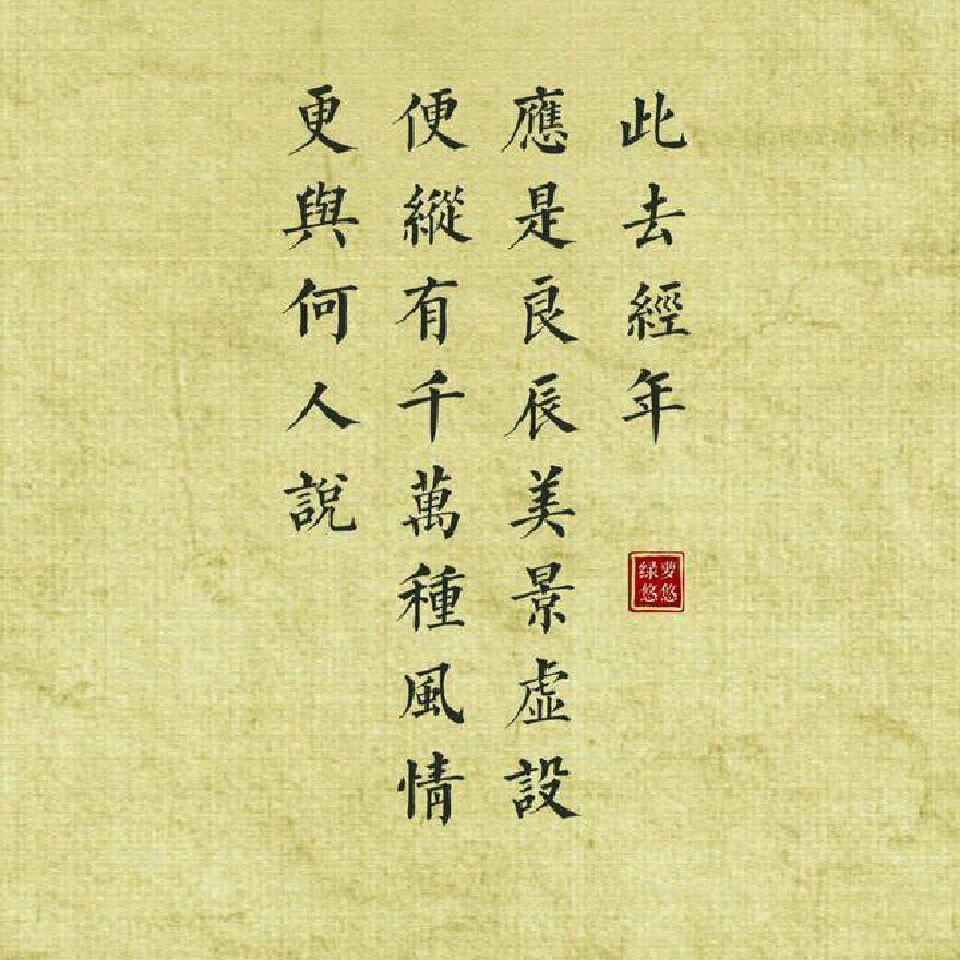 此去經年
應是良辰美景虛設
便縱有千萬種風情
更與何人說
要悠
绿悠